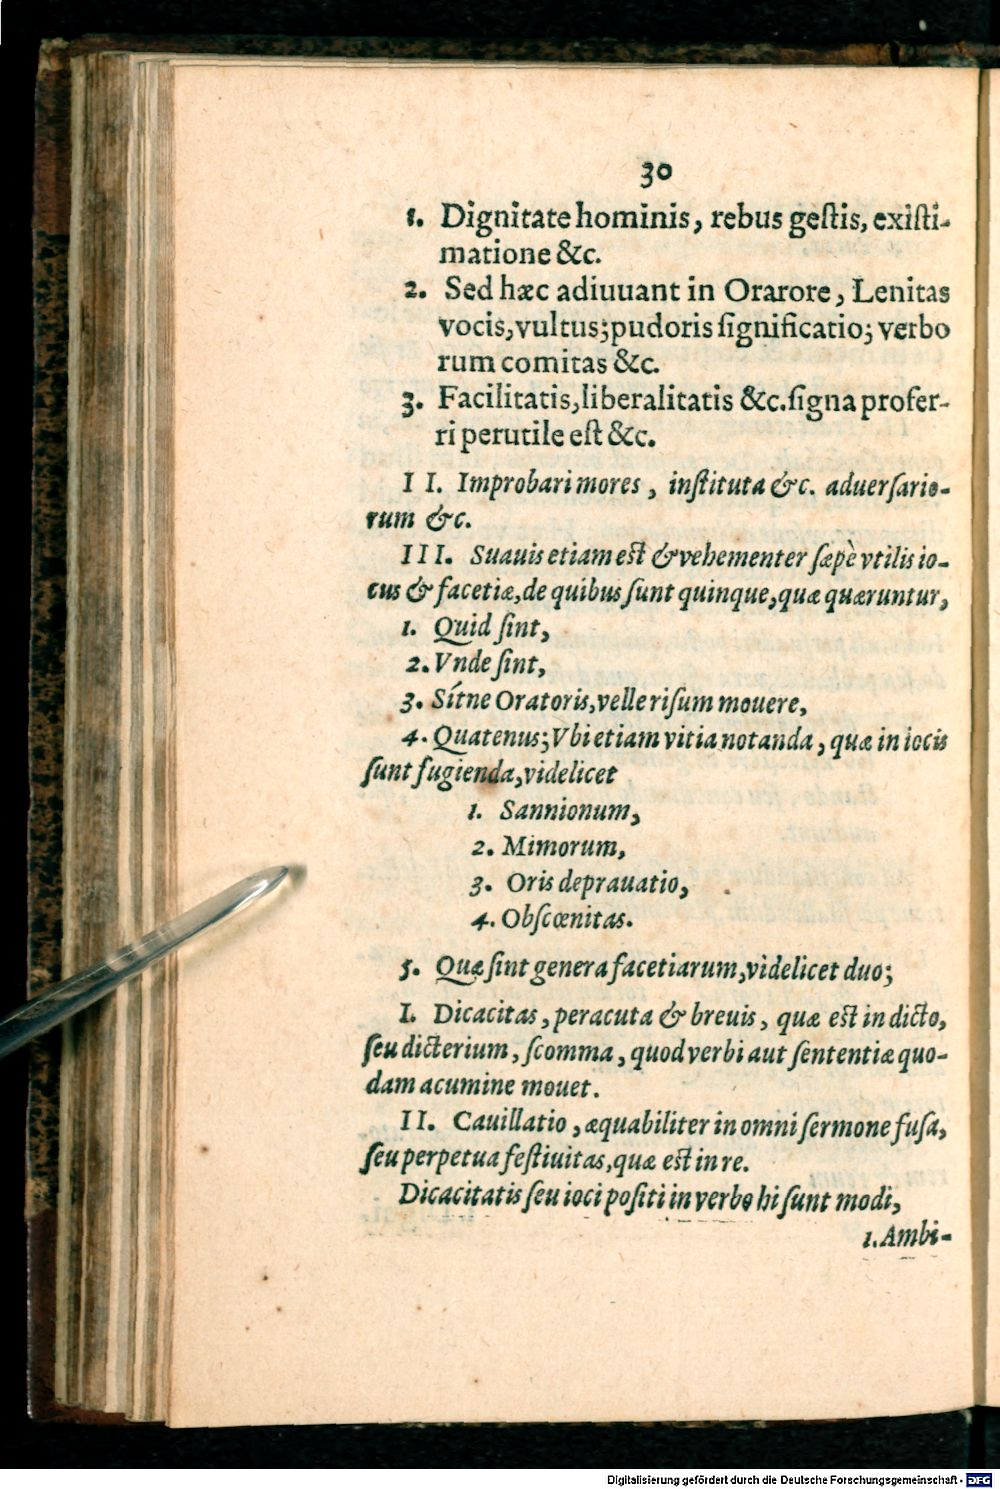 30
1. Dignitate hominis, rebus gestis, existi-
matione &c.
2. Sed hæc adiuuant in Orarore, Lenitas
vocis, vultus; pudoris significatio; verbo
rum comitas &c.
3. Facilitatis, liberalitatis &c. signa profer-
ri perutile est &c.
II. Improbari mores, instituta &c. aduersario-
rum &c.
III. Suauis etiam est & vehementer sæpè vtilis io-
cus & facetiæ, de quibus sunt quinque, quæ quæruntur,
1. Quid sint,
2. Vnde sint,
3. Sítne Oratoris, velle risum mouere,
4. Quatenus; Vbi etiam vitia notanda, quæ in iocis
sunt fugienda, videlicet
1. Sannionum,
2. Mimorum,
3. Oris deprauatio,
4. Obscœnitas.
5. Quæ sint genera facetiarum, videlicet duo;
I. Dicacitas, peracuta & breuis, quæ est in dicto,
seu dicterium, scomma, quod verbi aut sententiæ quo-
dam acumine mouet.
II. Cauillatio, æquabiliter in omni sermone fusa,
seu perpetua festiuitas, quæ est in re.
Dicacitatis seu ioci positi in verbo hi sunt modi,
1. Ambi-
Digitalisierung gefördert durch die Deutsche Forschungsgemeinschaft - DFG